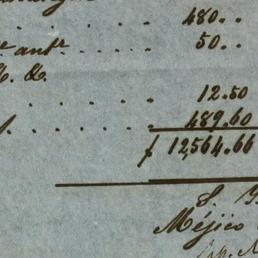 480..
.r antr. . . . . . 50..
&. &.
. . . . . . 12.50
. . . . . . 489.60
$ 12,564.66
S.
Méjico